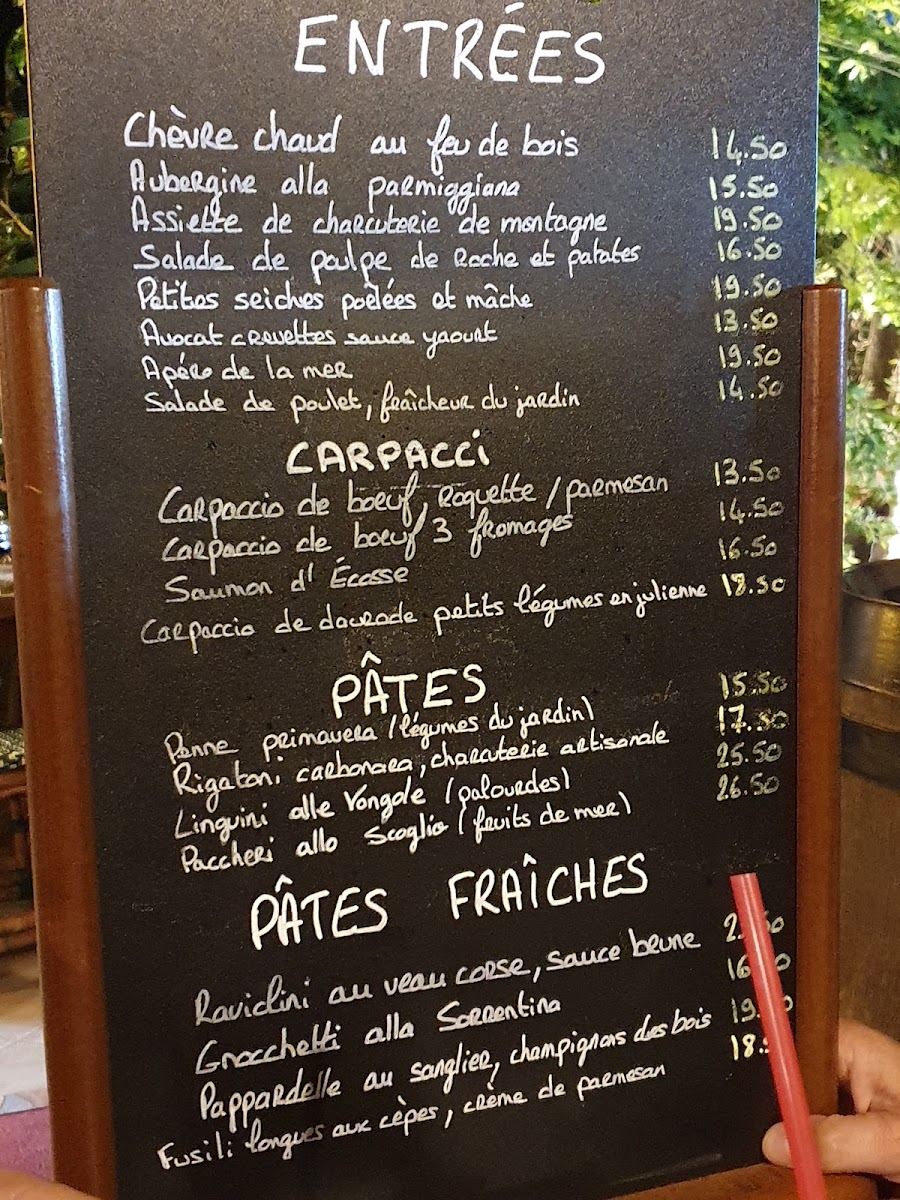 ENTRÉES
Chèvre chaud au feu de bois 14.50
Aubergine alla parmiggiana 15.50
Assiette de charcuterie de montagne 19.50
Salade de poulpe de Roche et patates 16.50
Petites seiches poêlées et mâche 19.50
Avocat crevettes sauce yaourt 13.50
Apéro de la mer 19.50
Salade de poulet, fraîcheur du jardin 14.50
CARPACCi
Carpaccio de boeuf, Roquette / parmesan 13.50
Carpaccio de boeuf 3 fromages 14.50
Saumon d' Écosse 16.50
Carpaccio de daurade petits légumes en julienne 18.50
PÂTES
Penne primavera (légumes du jardin) 15.50
Rigatoni carbonara, charcuterie artisanale 17.50
Linguini alle Vongole (palourdes) 25.50
Paccheri allo Scoglio (fruits de mer) 26.50
PÂTES FRAÎCHES
Raviolini au veau corse, sauce brune
Gnocchetti alla Sorrentina
Pappardelle au sanglier, champignons des bois
Fusili longues aux cèpes, crème de parmesan